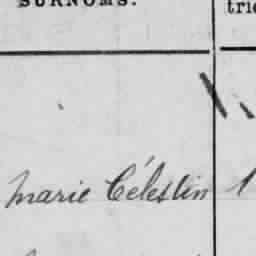 SURNOMS.
marie Célestin 1